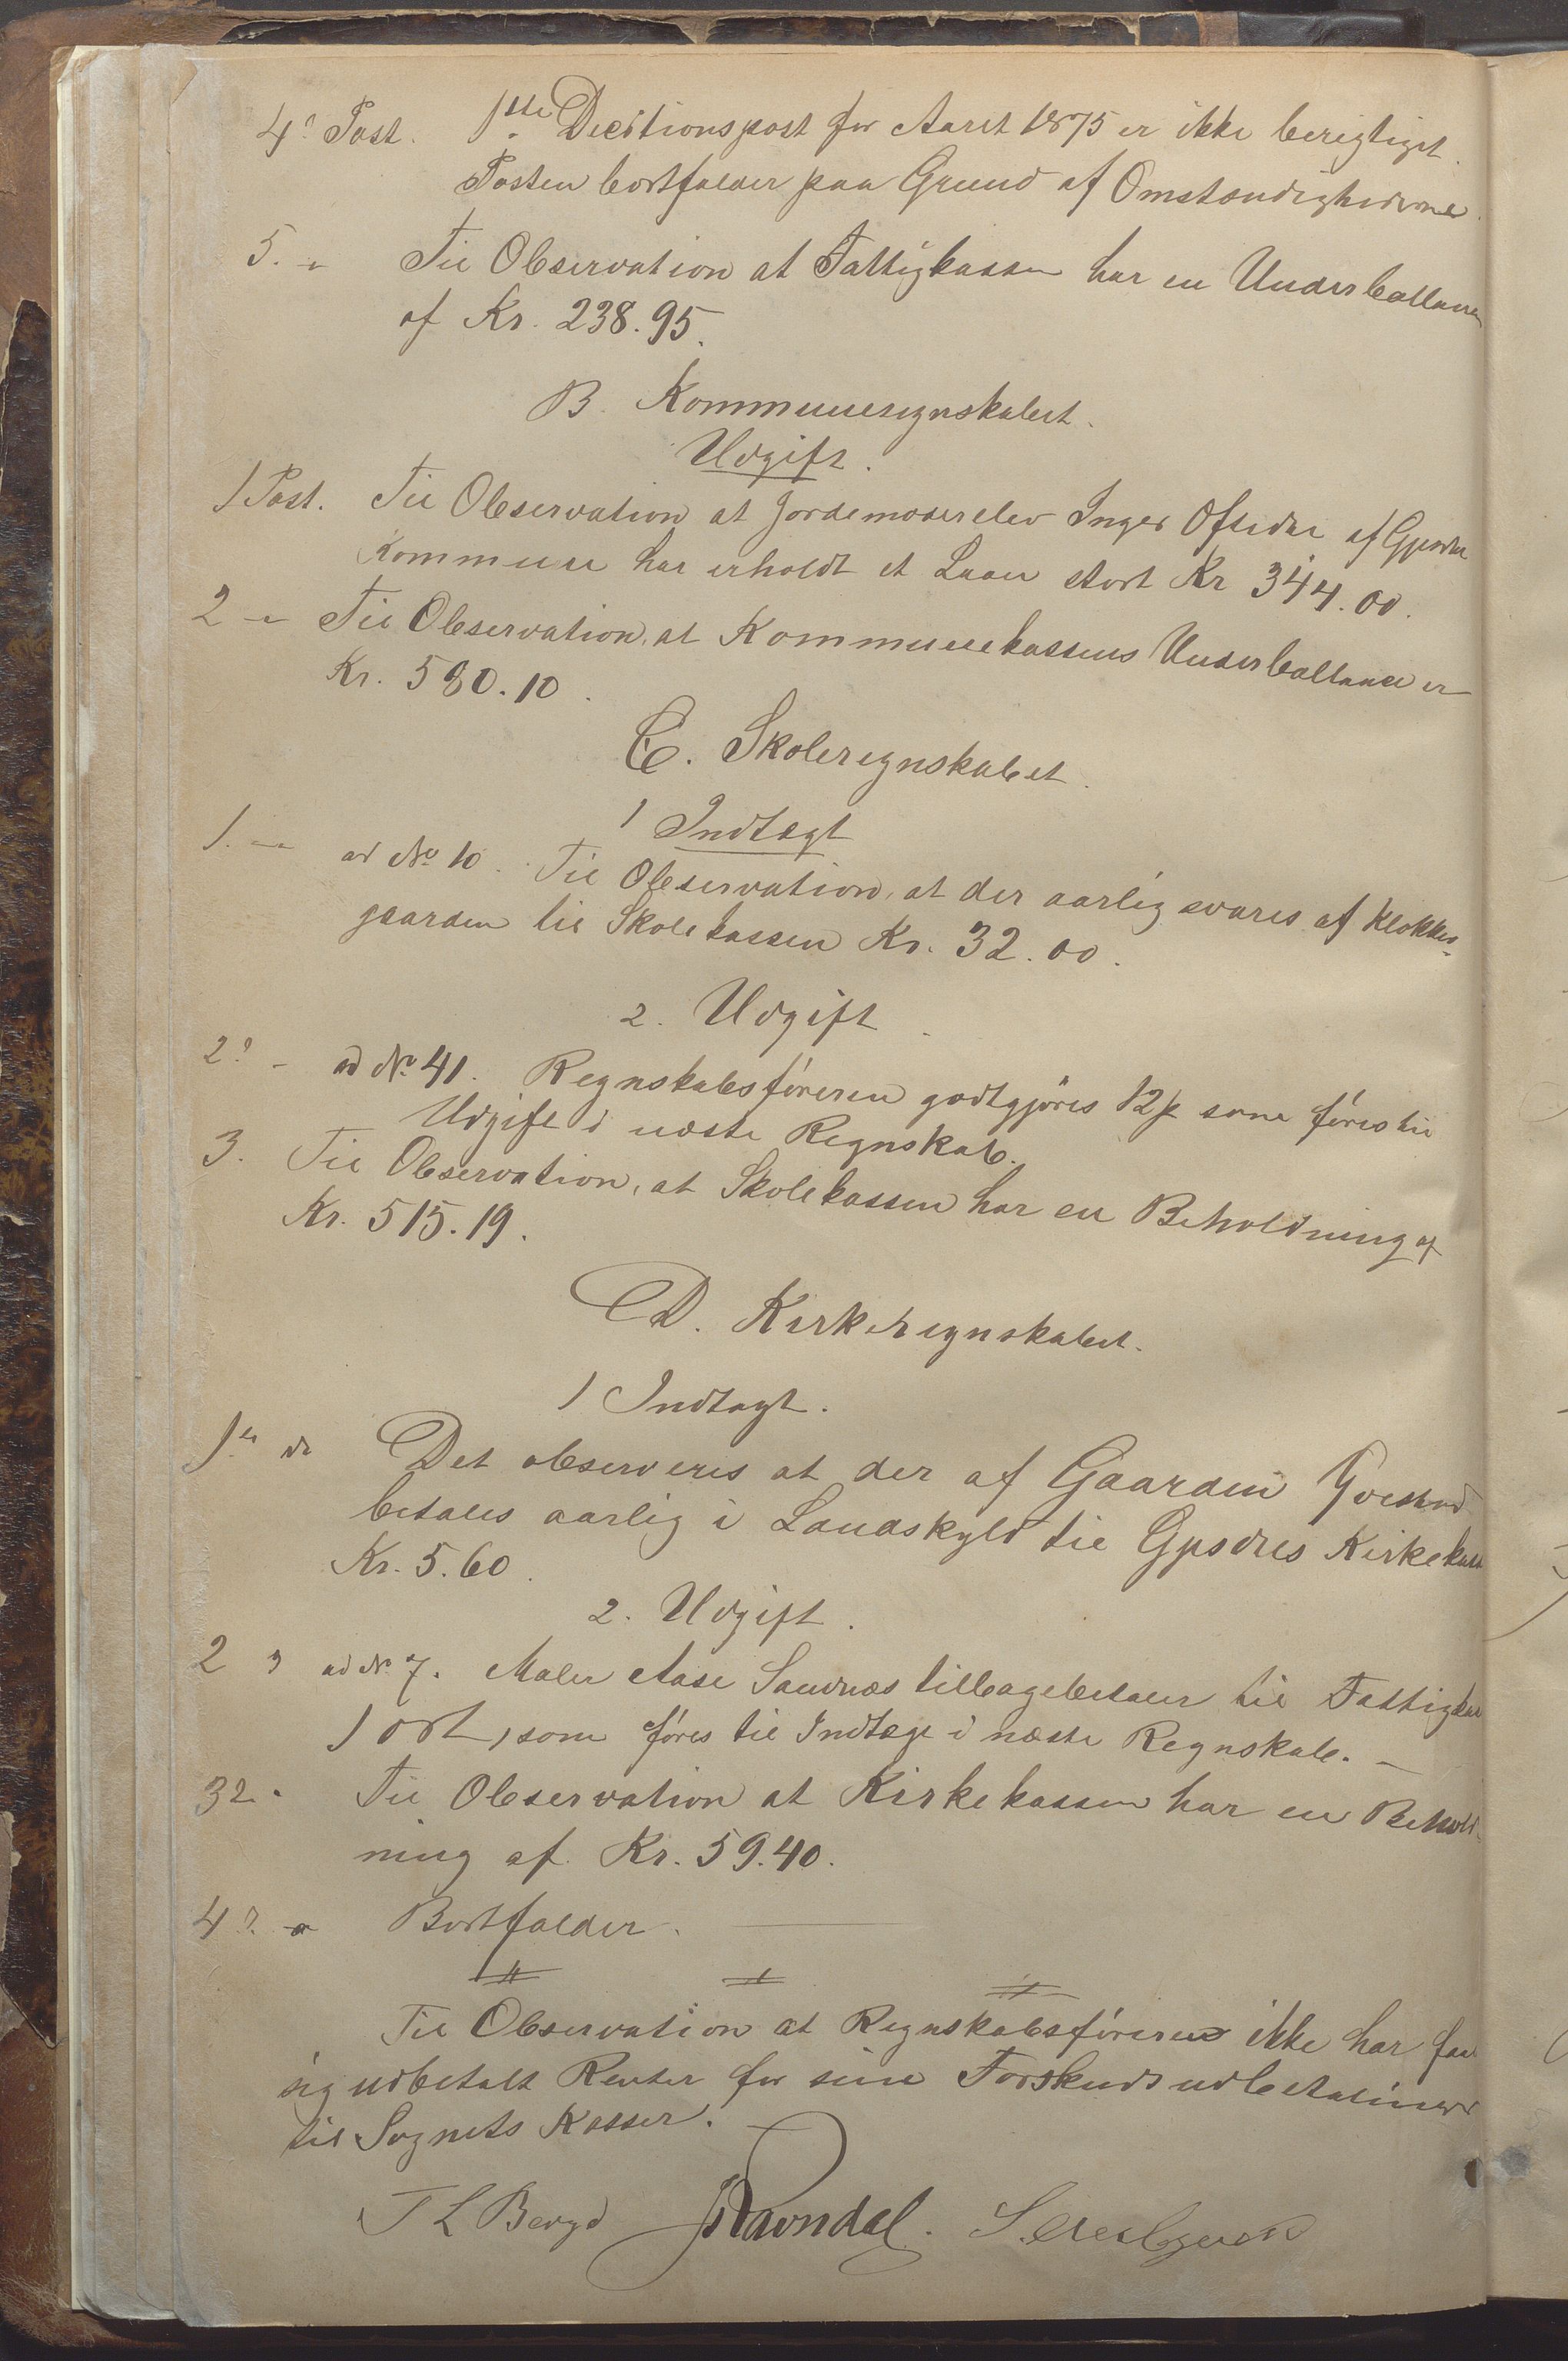 4? Post. 1ste Decitionspost for Aaret 1875 er ikke berigtiget.
Posten bortfalder paa Grund af Omstændighederne.
5. " Til Observation at Fattigkassen har en Underballance
af Kr. 238.95.
B. Kommuneregnskabet.
Udgift.
1 Post. Til Observation at Jordemoderelev Inger Oftedal af Gjesdal
Kommune har erholdt et Laan stort Kr 344.00.
2 " Til Observation, at Kommunekassens Underballance er
Kr. 580.10.
C. Skoleregnskabet.
1 Indtægt
1. " ad No 10. Til Observation, at der aarlig svares af Klokker-
gaarden til Skolekassen Kr. 32.00.
2. Udgift.
2? - ad No 41. Regnskabsføreren godtgjøres 12 ß som føres til
Udgift i næste Regnskab.
3. Til Observation, at Skolekassen har en Beholdning af
Kr. 515.19.
D. Kirkeregnskabet.
1 Indtægt.
1ste do Det observeres at der af Gaarden
betales aarlig i Landskyld til Gjesdals Kirkekasse
Kr. 5.60.
2. Udgift.
2 ad No 7. Maler Aase Sandnæs tilbagebetaler til Fattigkas
1 ort, som føres til Indtægt i næste Regnskab. -
3 Til Observation at Kirkekassen har en Behold-
ning af Kr. 59.40.
4? " Bortfalder.
Til Observation at Regnskabsføreren ikke har faaet
sig udbetalt Renter for sine Forskudsudbetalinger
til Sognets Kasser.
T L Berge Ravndal.